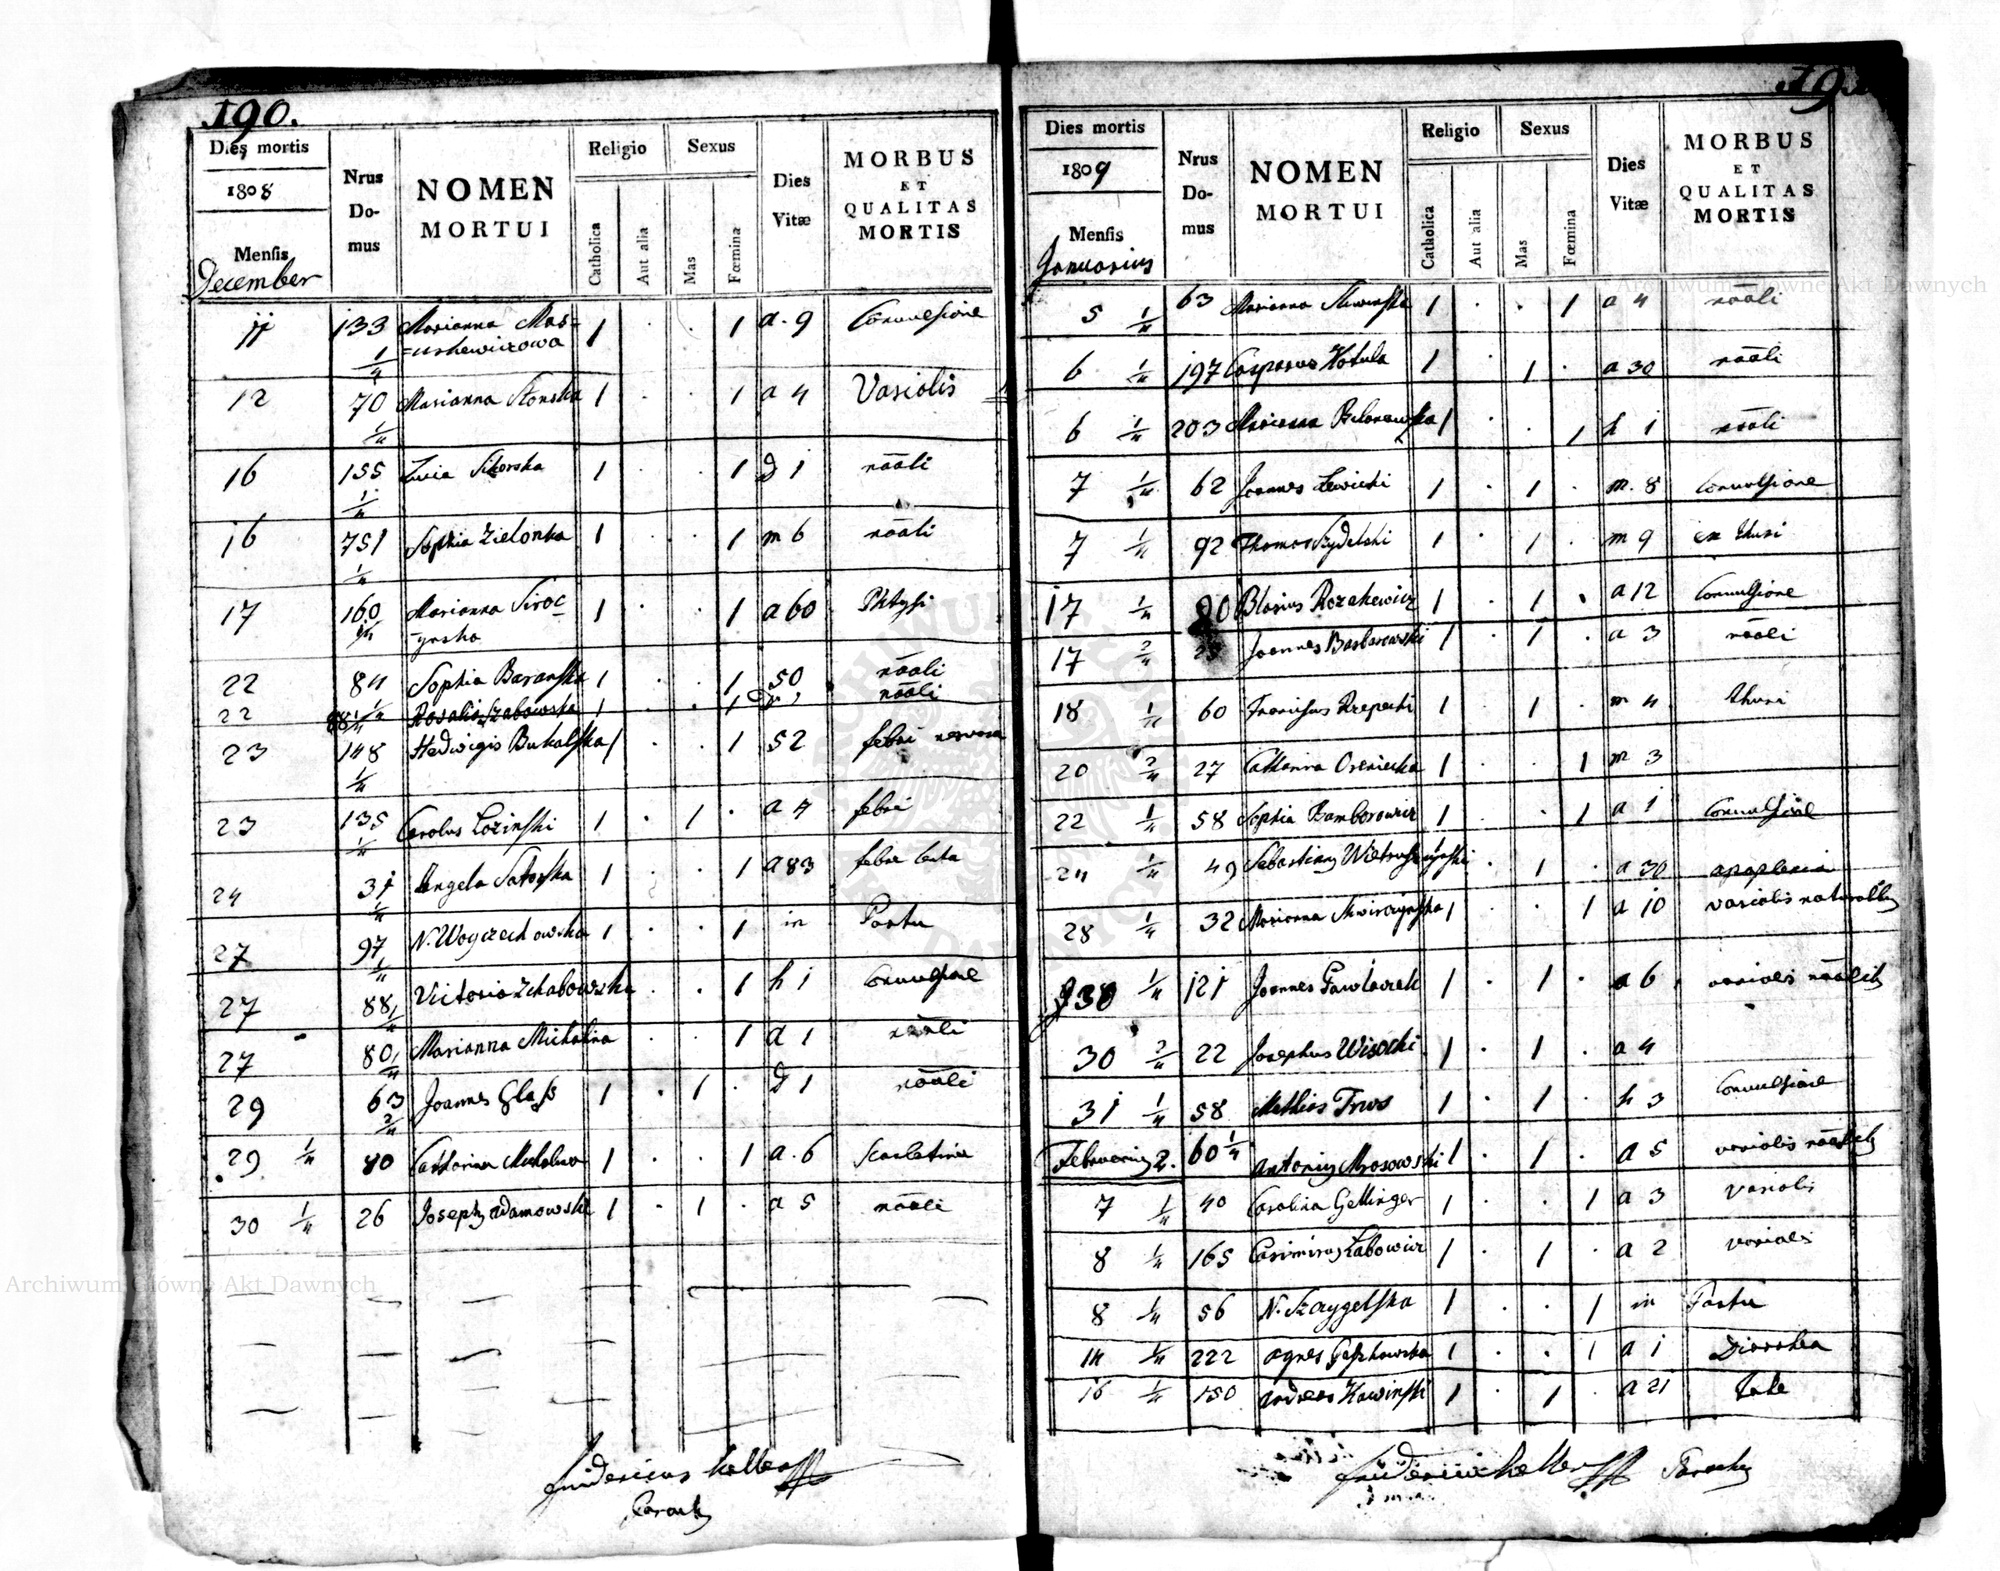 190.
Dies mortis
1808
Mensis
December
Nrus
Do-
mus
NOMEN
MORTUI
Religio
Catholica
Aut alia
Sexus
Mas
Fœmina
Dies
Vitæ
MORBUS
ET
QUALITAS
MORTIS
11 133 Marianna Mas= 1 . . 1 a. 9 Convulsione
1/4
12 70 Marianna Slonska 1 . . 1 a 4 Variolis
1/4
16 155 Lucia Sikorska 1 . . 1 D 1 nāāli
1/4
16 751 Sophia Zielonka 1 . . 1 m 6 nāāli
1/4
17 160 Marianna Siroc 1 . . 1 a 60 Phtysi
=ynska
22 84 1/4 Sophia Baranska 1 . . 1 50 nāāli
22 88 1/4 Rosalia Szabowska 1 . . 1 D 1 nāāli
23 148 Hedwigis Bukalska 1 . . 1 52 febri nervosa
1/4
23 135 Carolus Lozinski 1 . 1 . a 4 febri
1/4
24 31 Angela 1 . . 1 a 83 febri lenta
1/4
27 97 N. Woyciechowska 1 . . 1 in Partu
1/4
27 88 1/4 Victoria . . 1 h 1 Convulsione
27 80 1/4 Marianna Michalina . . 1 a 1 nāāli
29 63 Joannes Glass 1 . 1 . D 1 nāāli
2/4
29 1/4 80 Catharina 1 . . 1 a. 6 Scarlatina
30 1/4 26 Joseph Adamowski 1 . 1 . a 5 nāāli
Fridericus Keller
Paroch
Dies mortis
1809
Mensis
Januarius
Nrus
Do-
mus
NOMEN
MORTUI
Religio
Catholica
Aut alia
Sexus
Mas
Fœmina
Dies
Vitæ
MORBUS
ET
QUALITAS
MORTIS
5 1/4 63 Marianna 1 . . 1 a 4 nāāli
6 1/4 197 Casparus Kotula 1 . 1 . a 30 nāāli
6 1/4 203 Marianna 1 . . 1 h 1 nāāli
7 1/4 62 Joannes Lewicki 1 . 1 . m. 8 Convulsione
7 1/4 92 Thomas Szydelski 1 . 1 . m 9 ex thusi
17 1/4 Blasius Rozakewicz 1 . 1 . a 12 Convulsione
17 2/4 Joannes Barbarowski 1 . 1 . a 3 nāāli
18 1/4 60 Franciscus Krzepecki 1 . 1 . m 4 thusi
20 2/4 27 1 . . 1 m 3
22 1/4 58 Sophia Bamborowicz 1 . . 1 a 1 Convulsione
24 1/4 49 Sebastianus . 1 . a 30 apoplexia
28 1/4 32 Marianna Skwirczynska 1 . . 1 a 10 variolis naturalibus
30 1/4 121 Joannes Pawlaczek 1 . 1 . a 6 variolis
30 2/4 22 Josephus Wisocki 1 . 1 . a 4
31 1/4 58 Mathias Trus 1 . 1 . h 3 Convulsione
Februarius 2. 60 1/4 Antonius Mrosowski 1 . 1 . a 5 variolis
7 1/4 40 Carolina Gettinger 1 . . 1 a 3 variolis
8 1/4 165 Casimirus Labowicz 1 . 1 . a 2 variolis
8 1/4 56 N. Szczygelska 1 . . 1 in Partu
14 1/4 222 Agnes 1 . . 1 a 1 Diarrhea
16 1/4 150 Andreas Kawinski 1 . 1 . a 21 Tabe
Fridericus Keller Paroch
Archiwum Główne Akt Dawnych
Archiwum Główne Akt Dawnych